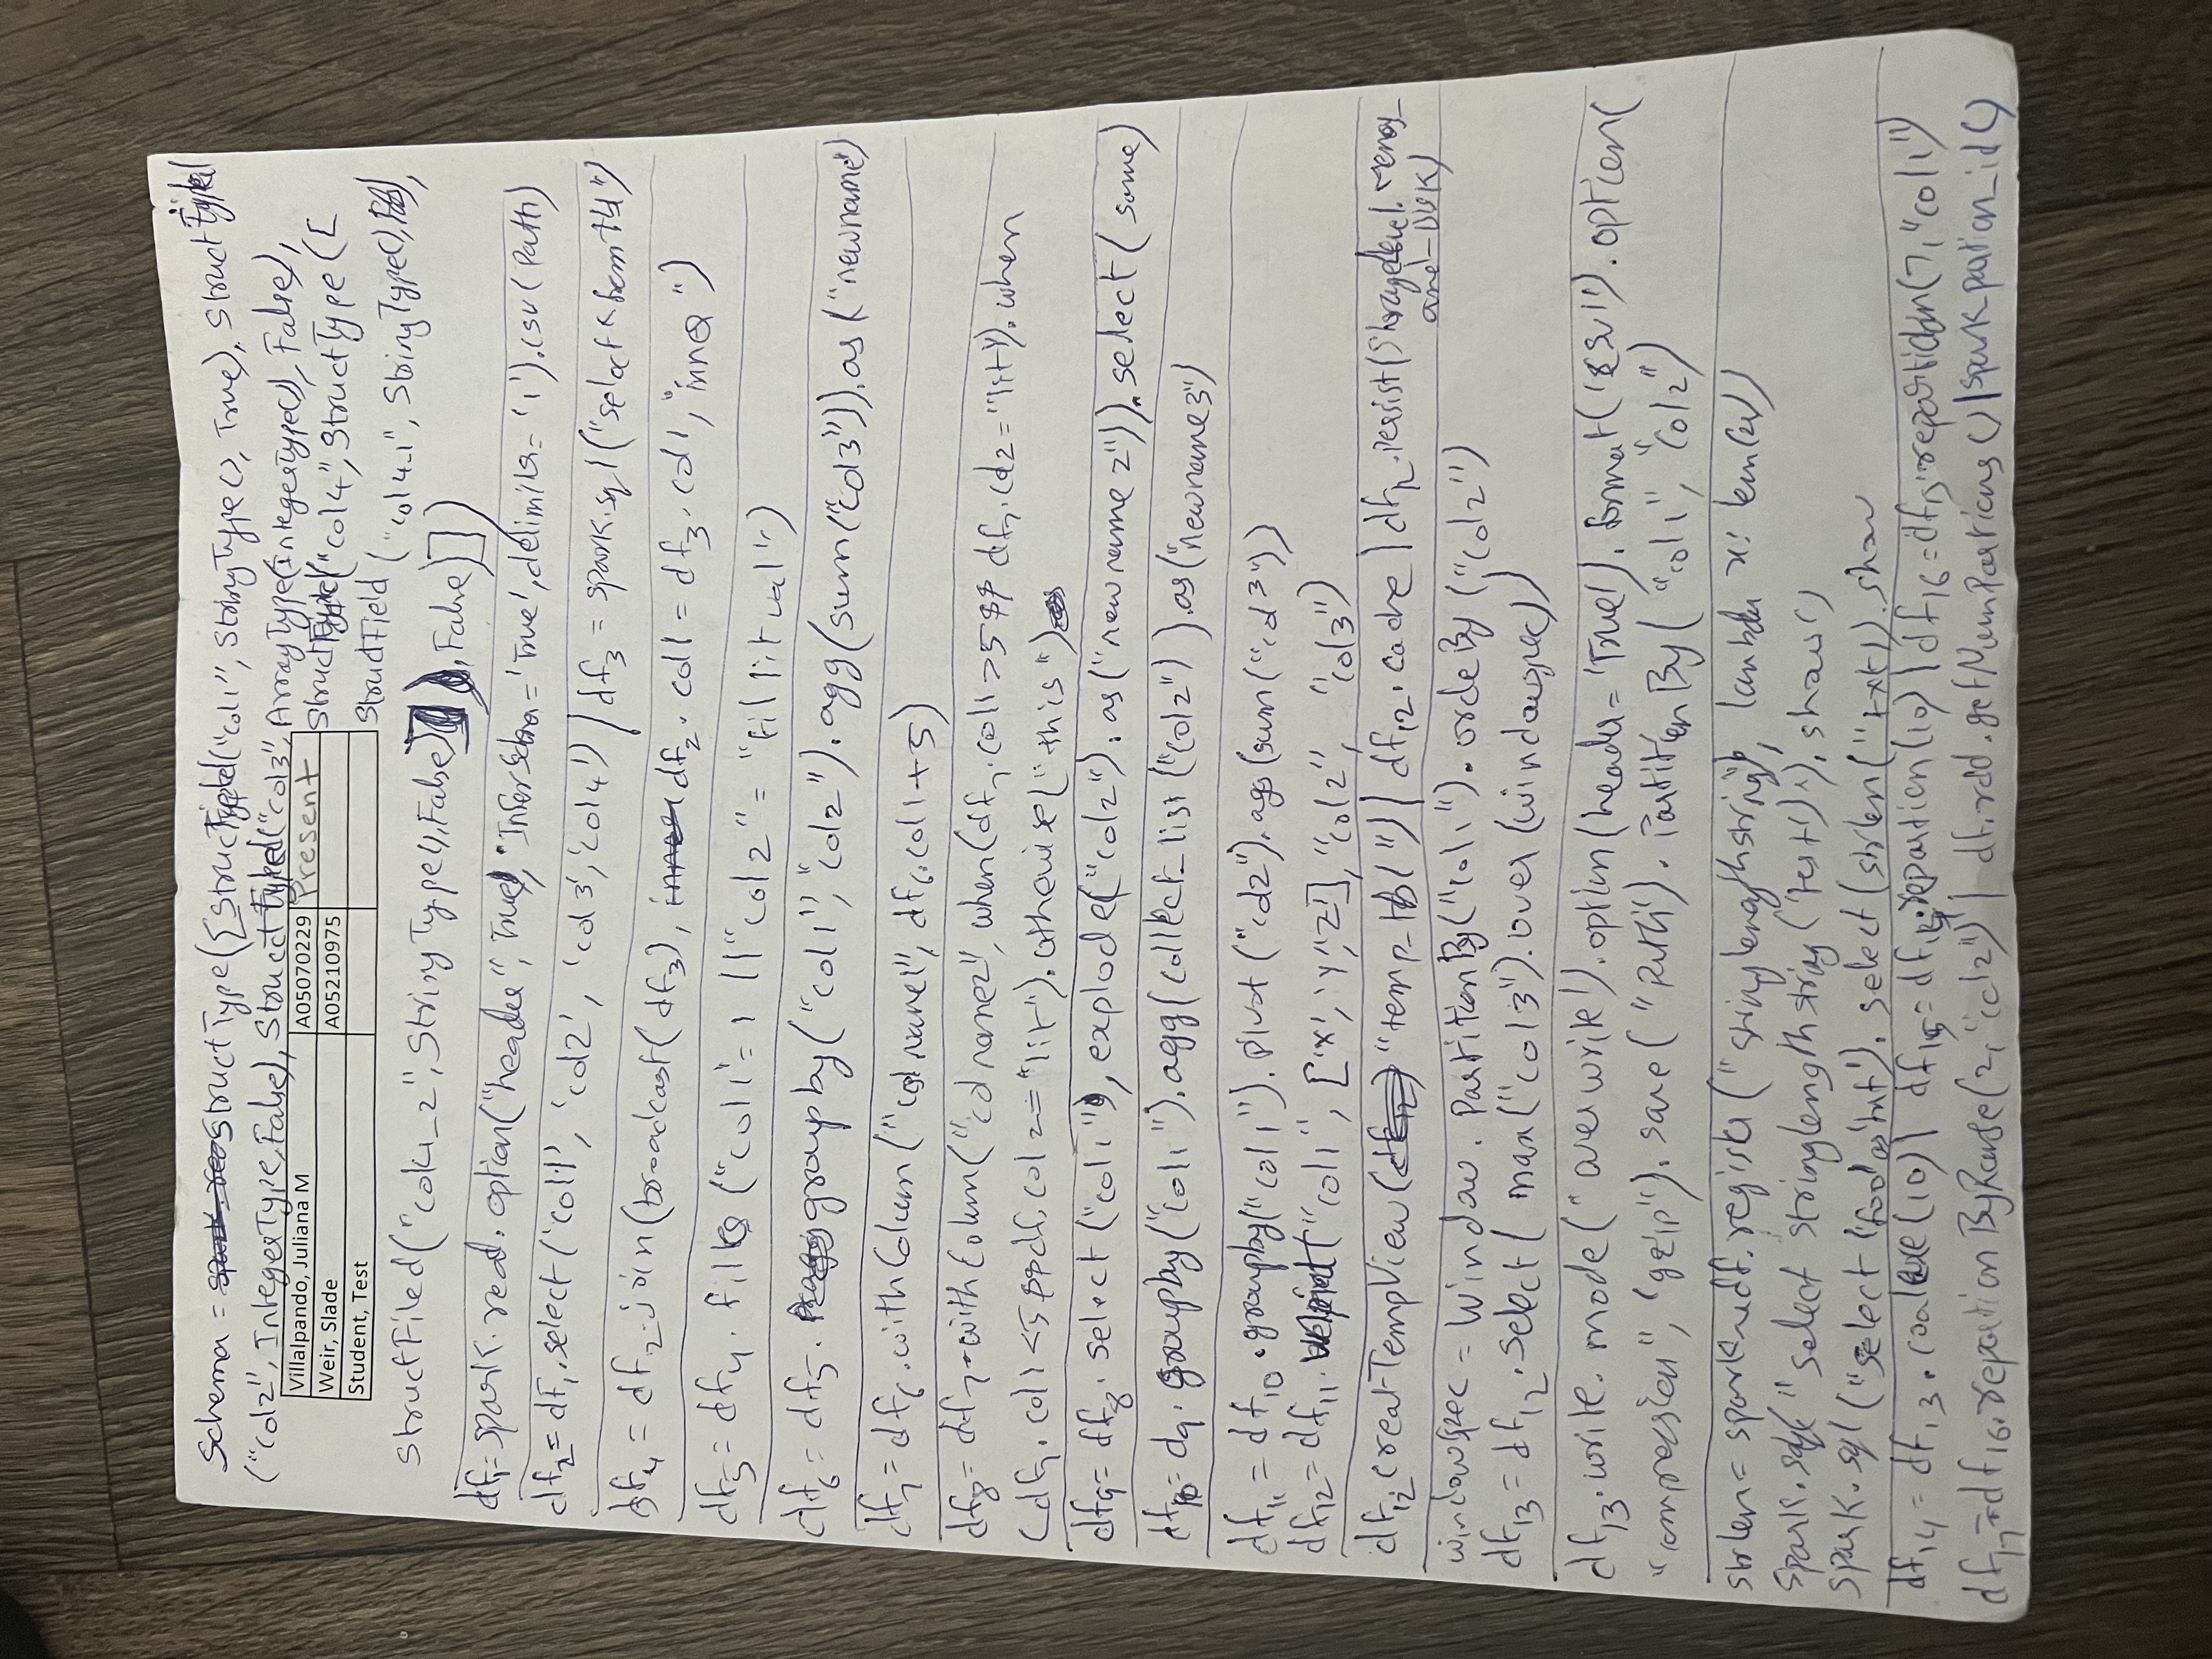 Schema = StructType([StructField("col1", StringType(), True), StructField
("col2", IntegerType, False), StructField("col3", ArrayType(IntegerType()), False),
Villalpando, Juliana M A05070229 Present
StructField("col4", StructType([
Weir, Slade A05210975
Student, Test
StructField("col4_1", StringType(),
StructFiled("col4_2", StringType(), False), False)])
df1 = spark.read.option("header", True, InferSchema = 'True', delimiter = '1').csv(Path)
df2 = df1.select('col1', 'col2', 'col3', 'col4') | df3 = spark.sql("select * from tbl")
df4 = df2.join(broadcast(df3), df2.col1 = df3.col1, "inner")
df5 = df4.filter("col1" = 1 || "col2" = "fil lit val")
df6 = df5.groupby("col1", "col2").agg(sum("col3")).as("newname")
df7 = df6.withColum("colname1", df6.col1+5)
df8 = df7.withColum("colname2", when(df7.col1 >5 $$ df7.col2 = "lit").when
(df7.col1 <5 $$ df7.col2 = "lit").otherwise("this")
df9 = df8.select("col1"), explode("col2").as("newname2")).select(same)
df10 = d9.groupby("col1").agg(collect_list("col2")).as("newname3")
df11 = df10.groupby("col1").pivot("col2").agg(sum("col3"))
df12 = df11.Unpivot("col1", ['X', 'Y', 'Z'], "col2", "col3")
df12.creatTempView("temp_tbl") | df12.cache | df12.Persist(StorageLevel.Memory_
and-DISK)
windowspec = Window.PartitionBy("col1").ordeBy("col2")
df13 = df12.select(max("col3").over(windowspec))
df13.write.mode("overwrite").option(header = 'True').format('csv').option(
"compression", 'gzip").save("Path").PartitionBy("col1", "col2")
strlen = spark.udf.register("stringlengthstring", lambda x: len(x))
Spark.sql("select stringlengthstring('test')").show()
Spark.sql("select 'foo' as txt").select(strlen("txt").show
df14 = df13.coalesce(10) | df15 = df14.repartion(10) | df16 = df15.repartition(7, "col1")
df17 = df16.repartionByRange(2, "col2") | df.rdd.getNumPartions() | spark_partion_id()